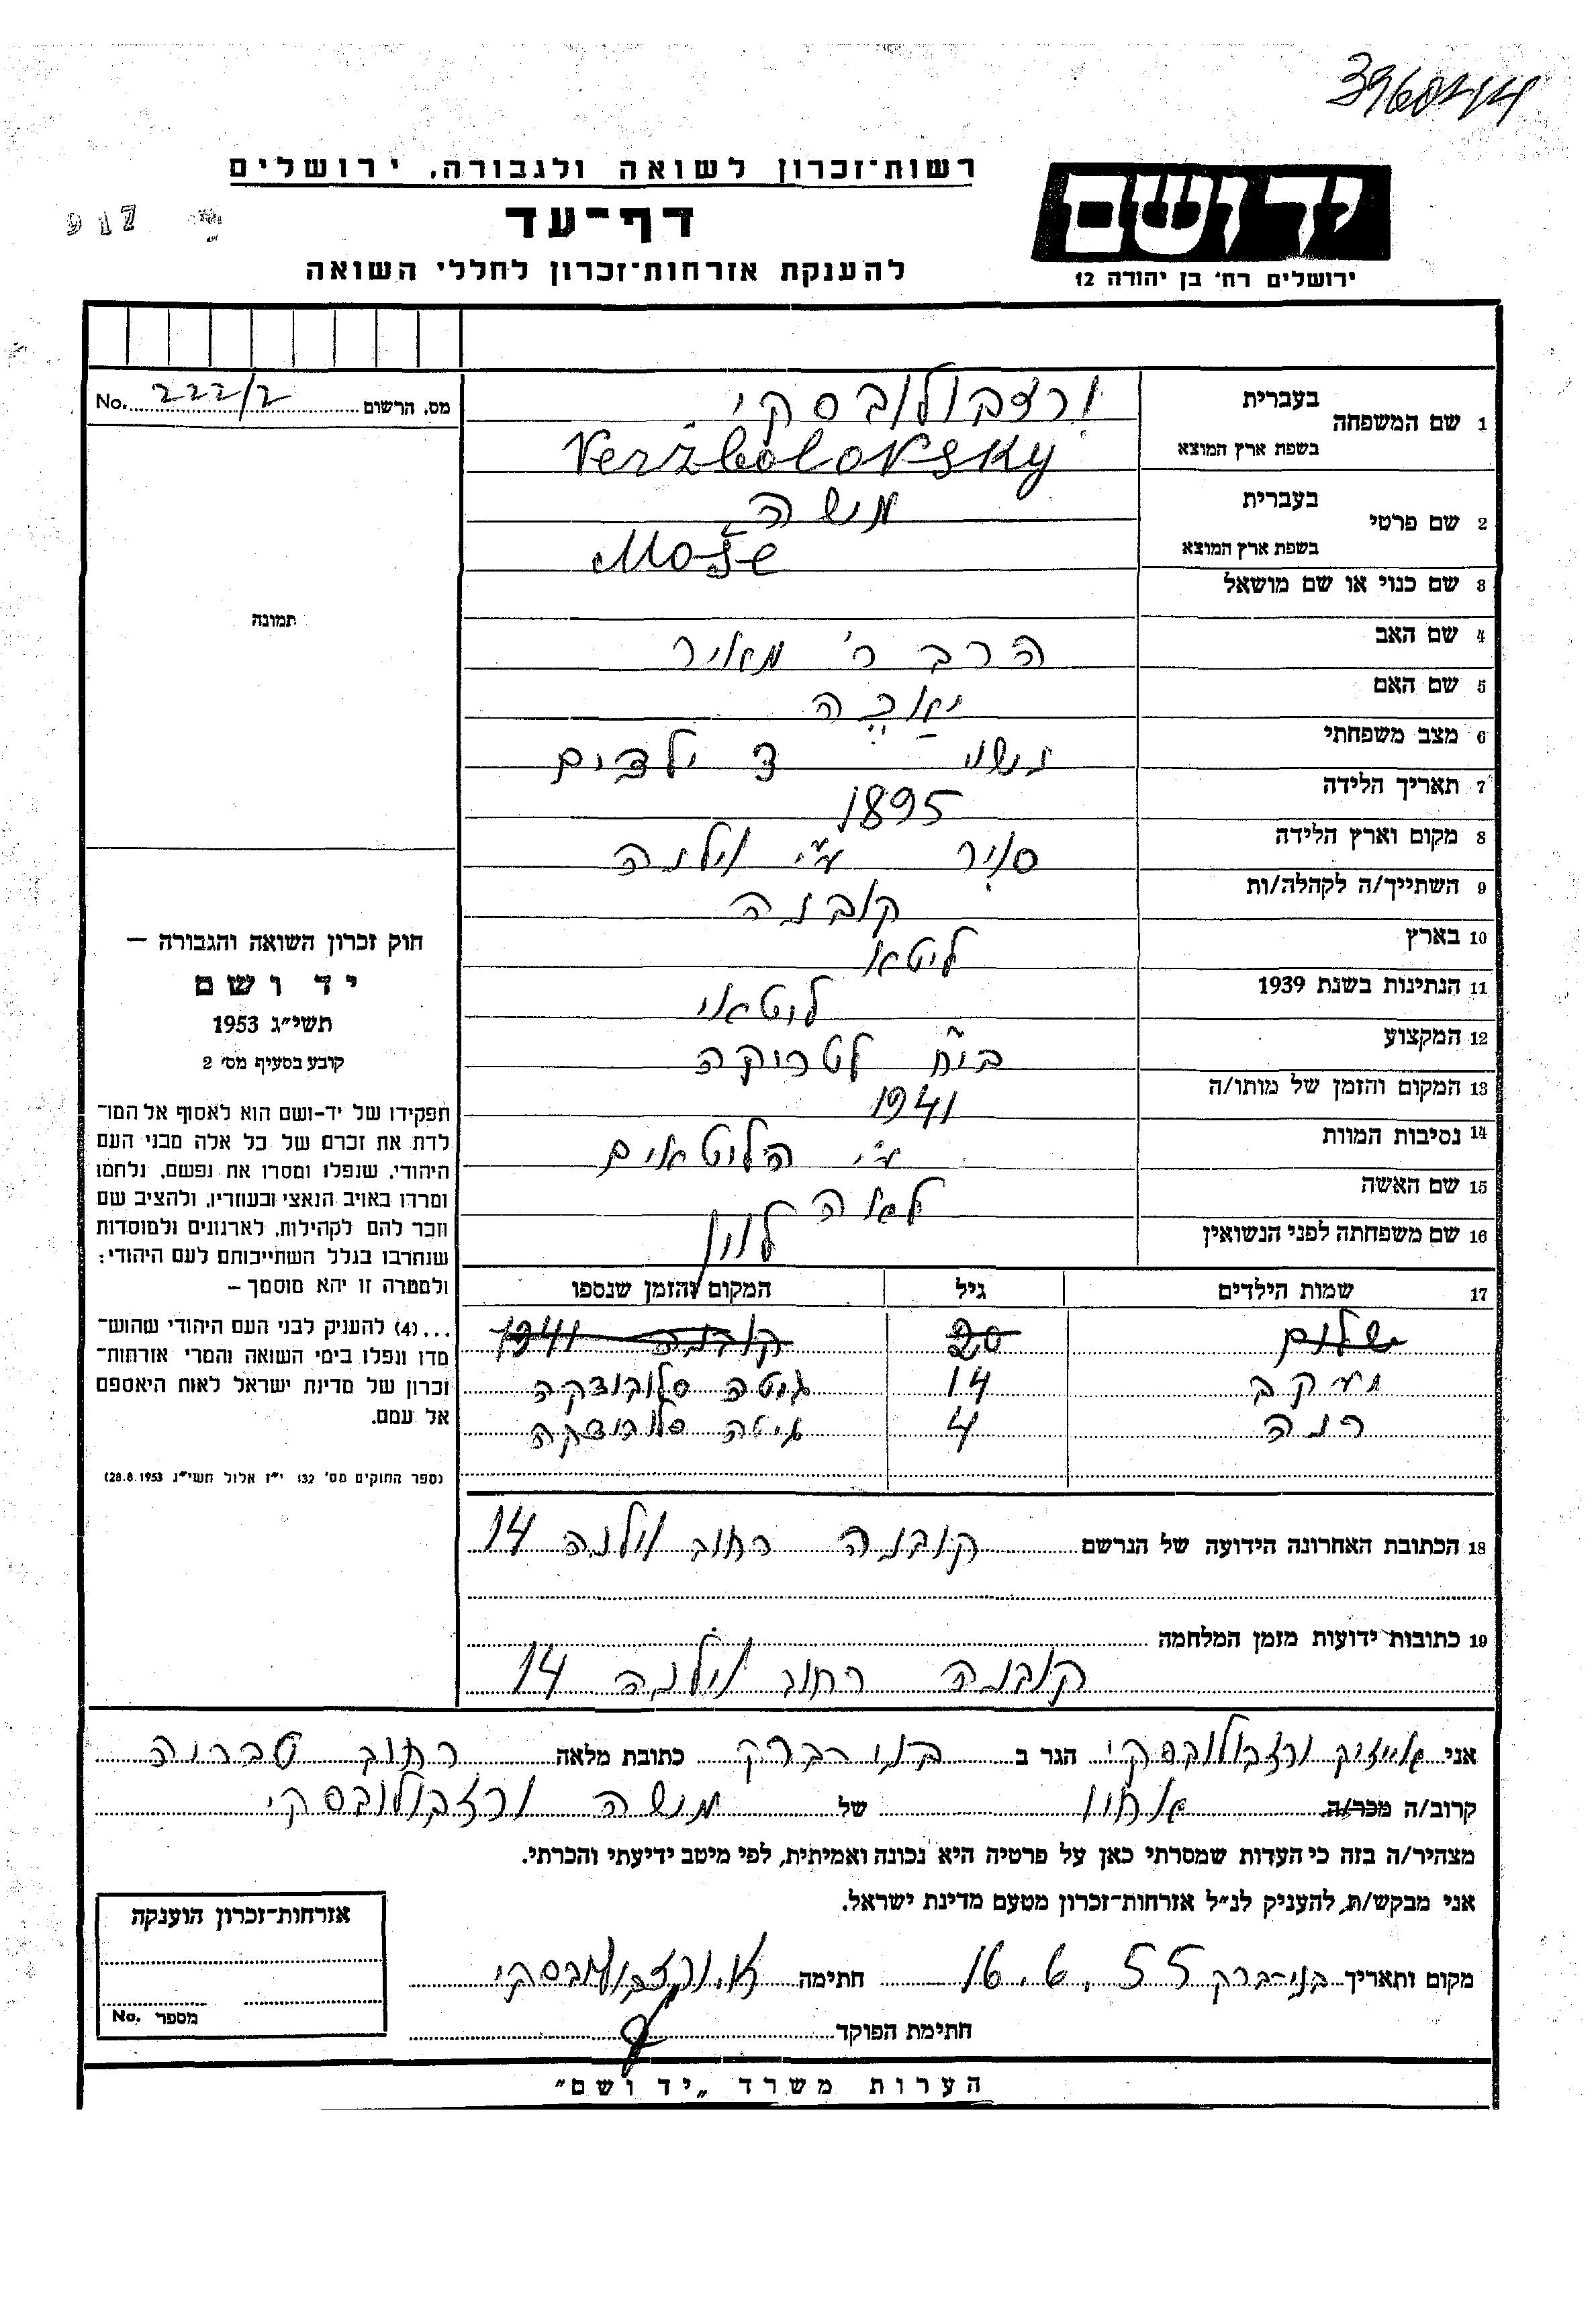 3960414
רשות־זכרון לשואה ולגבורה, ירושלים
דף־עד
להענקת אזרחות־זכרון לחללי השואה
יד ושם
ירושלים רח' בן יהודה 12
917
מס. הרשום 222/2 No.
תמונה
1 שם המשפחה בעברית ורזבולובסקי
בשפת ארץ המוצא Veržbolovsky
2 שם פרטי בעברית משה
בשפת ארץ המוצא Moše
3 שם כנוי או שם מושאל
4 שם האב הרב ר' מאיר
5 שם האם
6 מצב משפחתי נשוי ד ילדים
7 תאריך הלידה 1895
8 מקום וארץ הלידה סויר ע"י וילנה
9 השתייך/ה לקהלה/ות קובנה
10 בארץ ליטא
11 הנתינות בשנת 1939 ליטאי
12 המקצוע ביח לטרוקה
13 המקום והזמן של מותו/ה 1941
14 נסיבות המוות ע"י הליטאים
15 שם האשה לאה
16 שם משפחתה לפני הנשואין לוין
17 שמות הילדים גיל המקום והזמן שנספו
שלום 20 קובנה 1941
יעקב 14 גיטה סלובודקה
רנה 4 גיטה סלובודקה
18 הכתובת האחרונה הידועה של הנרשם קובנה רחוב וילנה 14
19 כתובות ידועות מזמן המלחמה
קובנה רחוב וילנה 14
חוק זכרון השואה והגבורה –
יד ושם
תשי״ג 1953
קובע בסעיף מס' 2
תפקידו של יד-ושם הוא לאסוף אל המו־
לדת את זכרם של כל אלה מבני העם
היהודי, שנפלו ומסרו את נפשם, נלחמו
ומרדו באויב הנאצי ובעוזריו, ולהציב שם
וזכר להם לקהילות, לארגונים ולמוסדות
שנחרבו בגלל השתייכותם לעם היהודי;
ולמטרה זו יהא מוסמך –
...(4) להעניק לבני העם היהודי שהוש־
מדו ונפלו בימי השואה והמרי אזרחות־
זכרון של מדינת ישראל לאות היאספם
אל עמם.
(ספר החוקים מס' 132 י"ז אלול תשי"ג 28.8.1953)
אני אייזיק ורזבולובסקי הגר ב בני ברק כתובת מלאה רחוב טבריה
קרוב/ה מכר/ה אחיו של משה ורזבולובסקי
מצהיר/ה בזה כי העדות שמסרתי כאן על פרטיה היא נכונה ואמיתית, לפי מיטב ידיעתי והכרתי.
אני מבקש/ת, להעניק לנ״ל אזרחות־זכרון מטעם מדינת ישראל.
מקום ותאריך בני-ברק 16.6.55 חתימה א. ורזבולובסקי
חתימת הפוקד
אזרחות־זכרון הוענקה
מספר No.
הערות משרד „יד ושם"